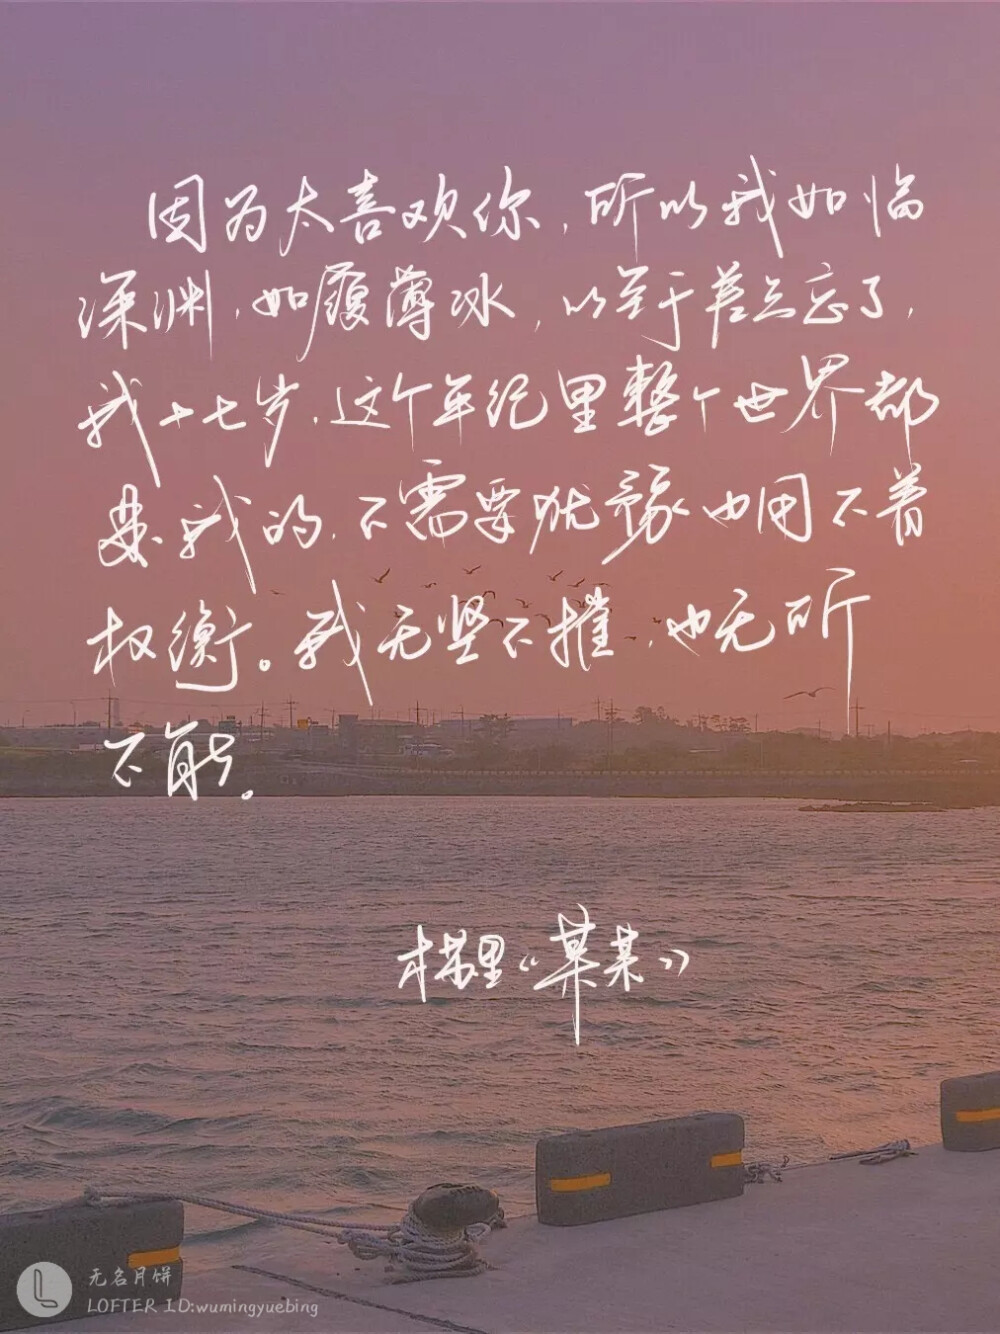 因为太喜欢你，所以我如临
深渊，如履薄冰，以至于差点忘了，
我十七岁，这个年纪里整个世界都
是我的，不需要犹豫也用不着
权衡。我无坚不摧，也无所
不能。
木苏里《某某》
无名月饼
LOFTER ID:wumingyuebing